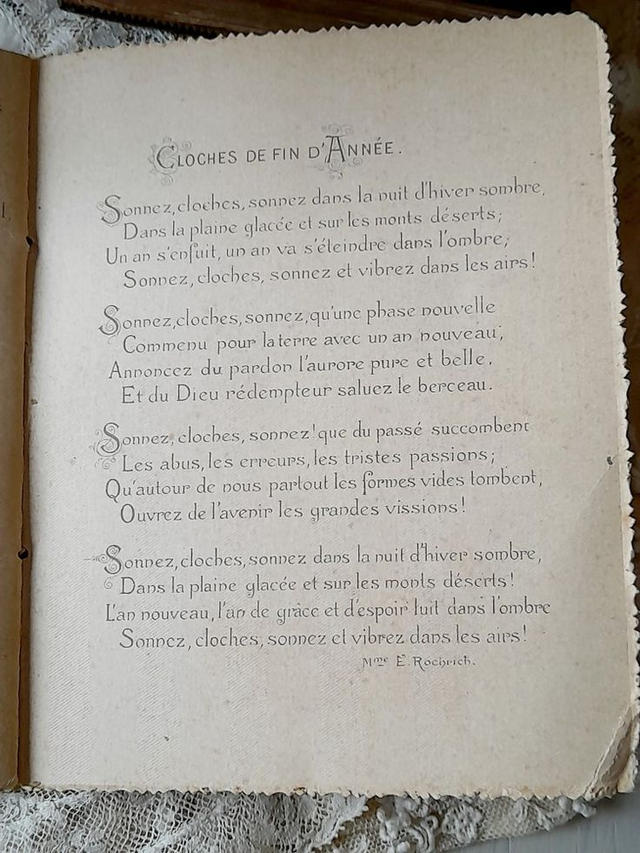 CLOCHES DE FIN D'ANNÉE.
Sonnez, cloches, sonnez dans la nuit d'hiver sombre,
Dans la plaine glacée et sur les monts déserts;
Un an s'enfuit, un an va s'éteindre dans l'ombre;
Sonnez, cloches, sonnez et vibrez dans les airs!
Sonnez, cloches, sonnez, qu'une phase nouvelle
Commenu pour la terre avec un an nouveau;
Annoncez du pardon l'aurore pure et belle,
Et du Dieu rédempteur saluez le berceau.
Sonnez, cloches, sonnez! que du passé succombent
Les abus, les erreurs, les tristes passions;
Qu'autour de nous partout les formes vides tombent,
Ouvrez de l'avenir les grandes vissions!
Sonnez, cloches, sonnez dans la nuit d'hiver sombre,
Dans la plaine glacée et sur les monts déserts!
L'an nouveau, l'an de grâce et d'espoir luit dans l'ombre
Sonnez, cloches, sonnez et vibrez dans les airs!
Mme E. Rochrich.